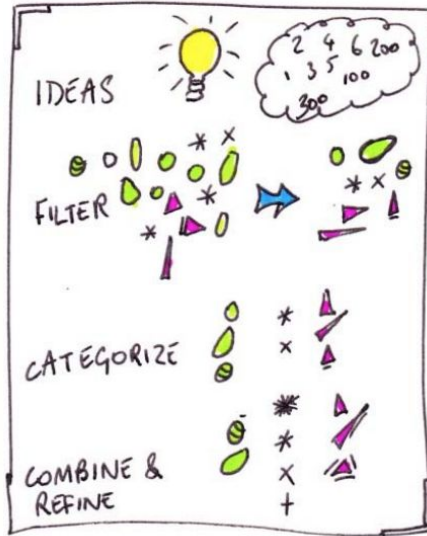 IDEAS
2 4 6 200
1 3 5 100
300
FILTER
CATEGORIZE
COMBINE &
REFINE